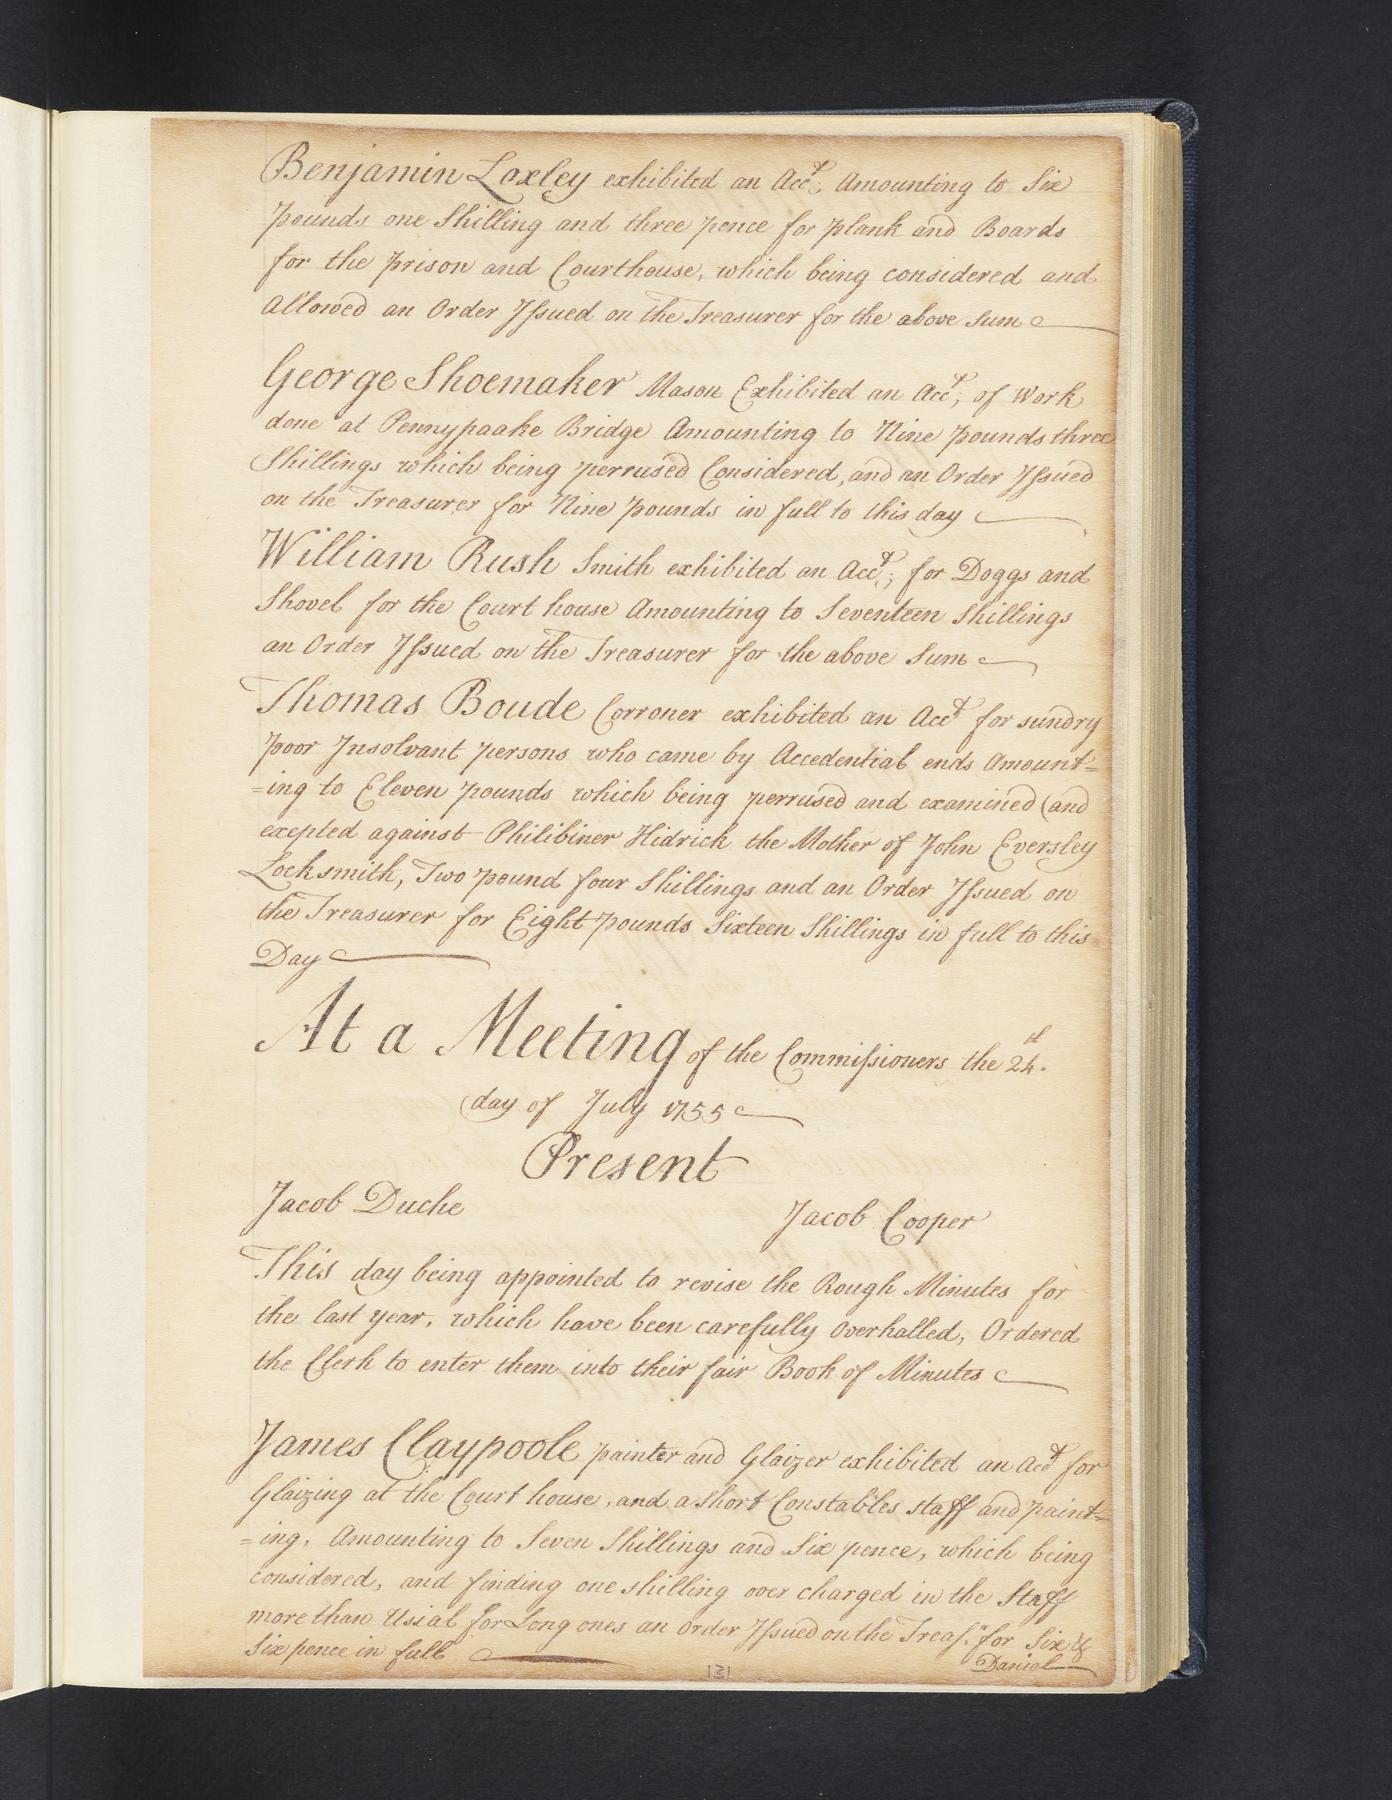 Benjamin Loxley exhibited an Acct; Amounting to Six
pounds one Shilling and three pence for plank and Boards
for the prison and Courthouse, which being considered and
Allowed an Order Issued on the Treasurer for the above Sum
George Shoemaker Mason Exhibited an Acct; of Work
done at Pennypaake Bridge Amounting to Nine pounds three
Shillings which being perrused Considered, and an Order Issued
on the Treasurer for Nine pounds in full to this day
William Rush Smith exhibited an Acct; for Doggs and
Shovel for the Court house Amounting to Seventeen Shillings
an Order Issued on the Treasurer for the above Sum
Thomas Boude Corroner exhibited an Acct for sundry
poor Insolvant persons who came by Accedential ends Amount=
=ing to Eleven pounds which being perrused and examined (and
exepted against Philibiner Hidrick the Mother of John Eversley
Locksmith, Two pound four Shillings and an Order Issued on
the Treasurer for Eight pounds Sixteen Shillings in full to this
Day
At a Meeting of the Commissioners the 24th.
day of July 1755
Present
Jacob Duche Jacob Cooper
This day being appointed to revise the Rough Minutes for
the last year, which have been carefully overhalled, Ordered
the Clerk to enter them into their fair Book of Minutes
James Claypoole painter and Glaizer exhibited an Acct for
Glaizing at the Court house, and a Short Constables staff and paint=
=ing, Amounting to Seven Shillings and Six pence, which being
considered, and finding one shilling over charged in the Staff
more than Usial for Long ones an order Issued on the Treasr. for Six &
Six pence in full
Daniel
131